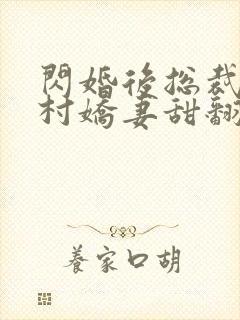 閃婚後總裁
村嬌妻甜翻
養家口胡